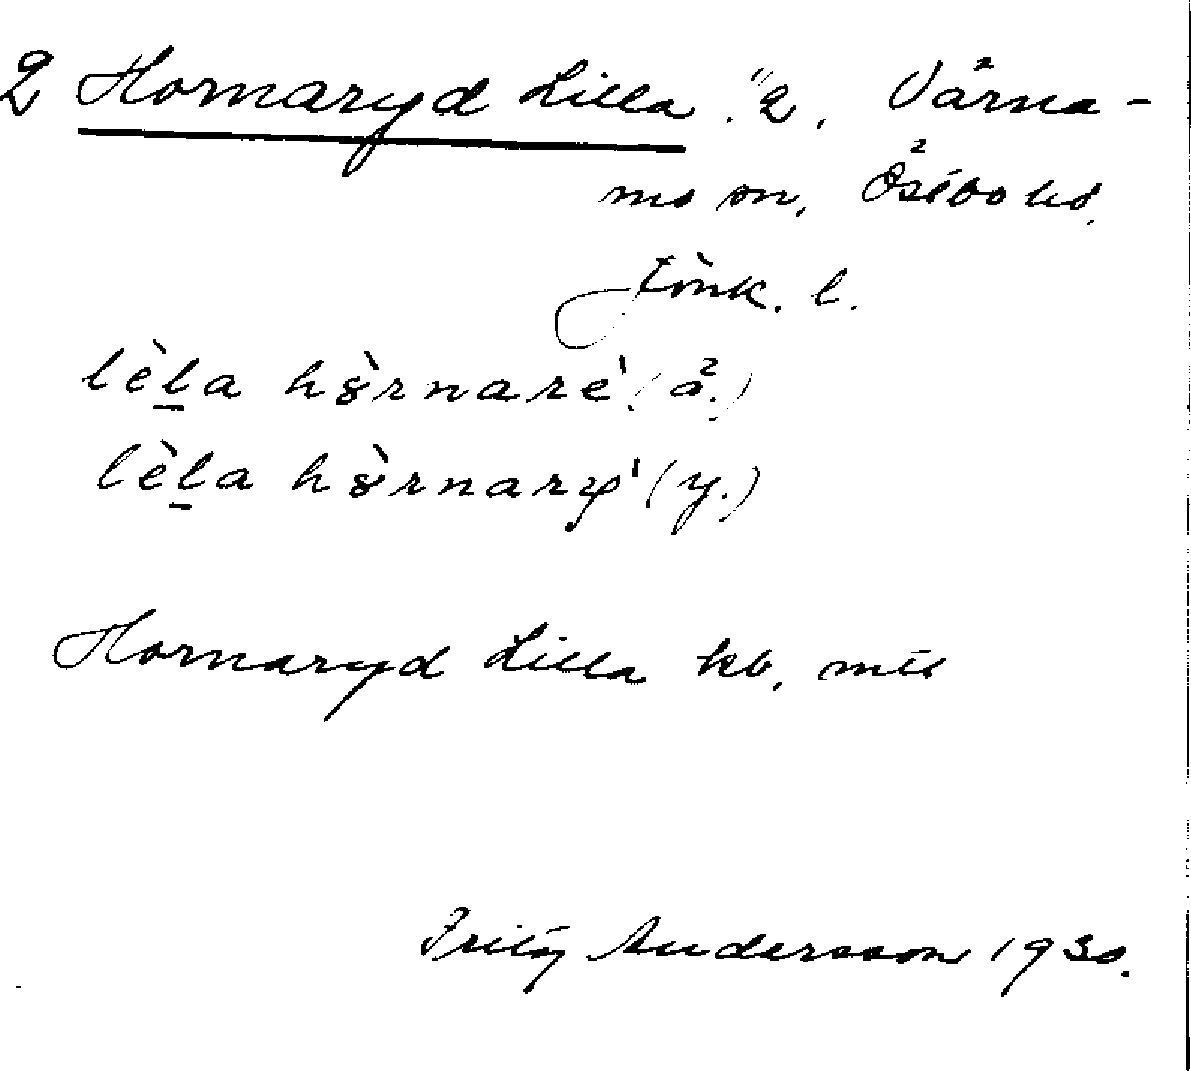 2 Hornaryd Lilla. "2. Värna-
mo sn, Östbo hd.
Jönk. l.
lèla hòrnaré (ä.)
lèla hòrnarý (y.)
Hornaryd Lilla kb, mtl
Fritz Andersson 1930.